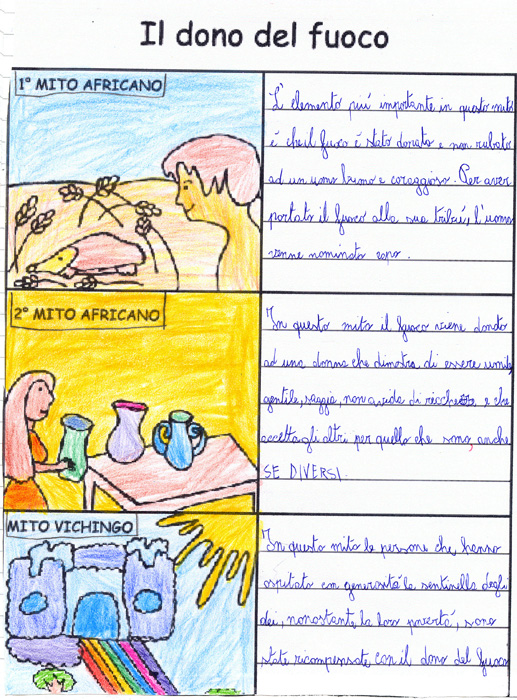 Il dono del fuoco
1° MITO AFRICANO
L'elemento piú importante in questo mito
é che il fuoco é stato donato e non rubato
ad un uomo buono e coraggioso. Per aver
portato il fuoco alla sua tribú, l'uomo
venne nominato capo.
2° MITO AFRICANO
In questo mito il fuoco viene donato
ad una donna che dimostra di essere umile,
gentile, saggia, non avida di ricchezze e che
accetta gli altri per quello che sono, anche
SE DIVERSI.
MITO VICHINGO
In questo mito le persone che hanno
ospitato con generositá la sentinella degli
dei, nonostante la loro povertá, sono
state ricompensate con il dono del fuoco